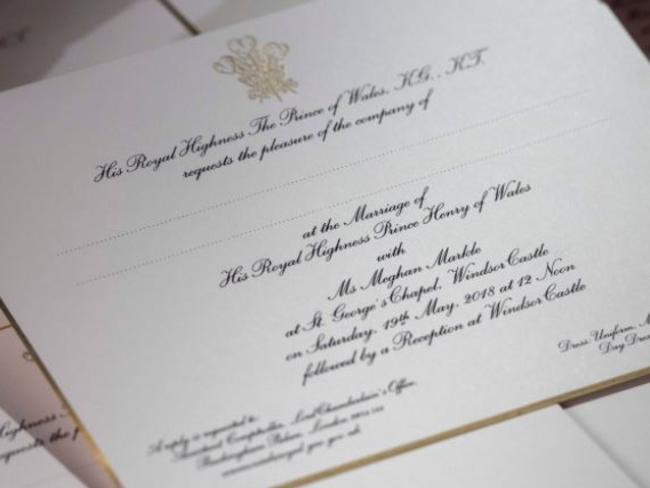 His Royal Highness The Prince of Wales, K.G., K.T.
requests the pleasure of the company of
at the Marriage of
His Royal Highness Prince Henry of Wales
with
Ms Meghan Markle
at St. George's Chapel, Windsor Castle
on Saturday, 19th May, 2018 at 12 Noon
followed by a Reception at Windsor Castle
Dress: Uniform,
Day
A reply is requested to:
Comptroller, Lord Chamberlain's Office,
Buckingham Palace, London
Highness
requests the